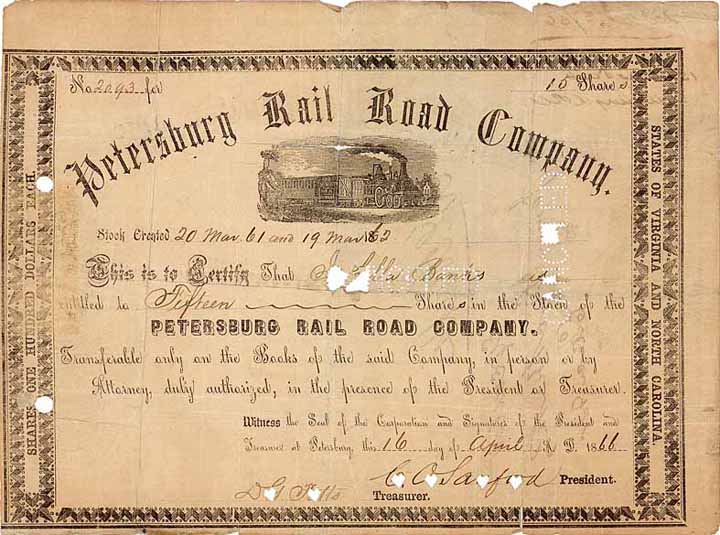 No. 2093 for
15 Shares
Petersburg Rail Road Company.
Stock Created 20 Mar. 61 and 19 Mar 62
This is to Certify That Banks is
entitled to Fifteen Shares in the Stock of the
PETERSBURG RAIL ROAD COMPANY.
Transferable only on the Books of the said Company, in person or by
Attorney, duly authorized, in the presence of the President or Treasurer.
Witness the Seal of the Corporation and Signatures of the President and
Treasurer at Petersburg, this 16 day of April A. D. 1866
C O Sanford President.
D G Potts Treasurer.
SHARES ONE HUNDRED DOLLARS EACH.
STATES OF VIRGINIA AND NORTH CAROLINA.